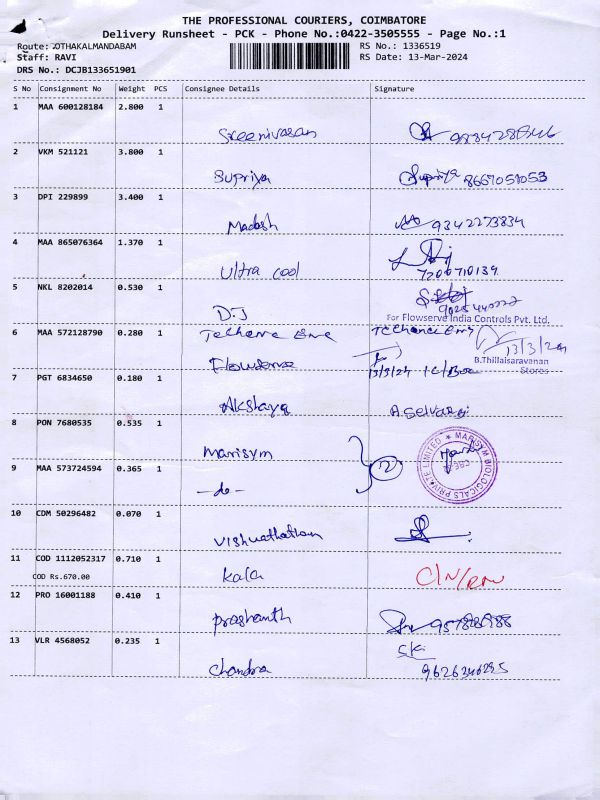 THE PROFESSIONAL COURIERS, COIMBATORE
Delivery Runsheet - PCK - Phone No.:0422-3505555 - Page No.:1
Route: OTHAKALMANDABAM
RS No.: 1336519
Staff: RAVI
RS Date: 13-Mar-2024
DRS No.: DCJB133651901
S No Consignment No Weight PCS Consignee Details Signature
1 MAA 600128184 2.800 1
Sreenivasan
2 VKM 521121 3.800 1
Supriya Supriya 8667051053
3 DPI 229899 3.400 1
Madesh 9342273834
4 MAA 865076364 1.370 1
Ultra cool 7200710139
5 NKL 8202014 0.530 1
D.J
For Flowserve India Controls Pvt. Ltd.
6 MAA 572128790 0.280 1
13/3/24
B.Thillaisaravanan
Stores
Flowserve 13/3/24
7 PGT 6834650 0.180 1
Akshaya A.Selvaraj
8 PON 7680535 0.535 1
Marisym
MARISYM BIOLOGICALS PRIVATE LIMITED
CBE
9 MAA 573724594 0.365 1
-do- 2
10 CDM 50296482 0.070 1
Vishwathatham
11 COD 1112052317 0.710 1
COD Rs.670.00
Kala
12 PRO 16001188 0.410 1
prashanth
13 VLR 4568052 0.235 1
Chandra 9626346295